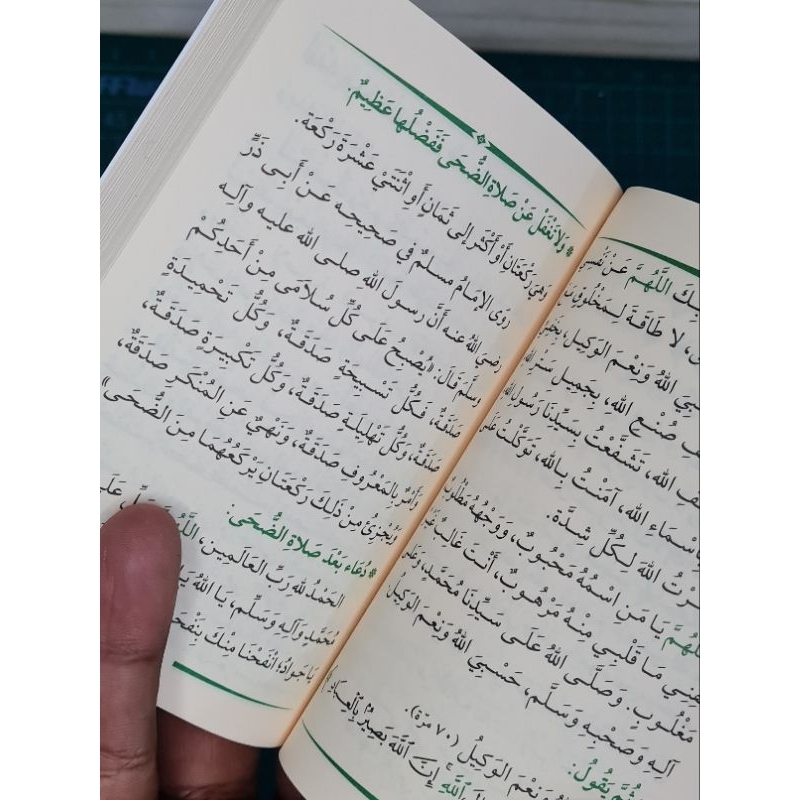 * وَلَا تَغْفَلْ عَنْ صَلَاةِ الضُّحَى فَفَضْلُهَا عَظِيمٌ.
وَهِيَ رَكْعَتَانِ أَوْ أَكْثَرُ إِلَى ثَمَانٍ أَوِ اثْنَتَيْ عَشْرَةَ رَكْعَة.
روى الإمَامُ مسلمٌ في صَحِيحِه عَنْ أَبِي ذَرٍّ
رضيَ اللهُ عنه أنَّ رسولَ اللهِ صلى الله عليه وآله
وسلَّم قَالَ: «يُصْبِحُ عَلَى كُلِّ سُلَامَى مِنْ أَحَدِكُمْ
صَدَقَةٌ، فَكُلُّ تَسْبِيحَةٍ صَدَقَةٌ، وَكُلُّ تَحْمِيدَةٍ
صَدَقَةٌ، وَكُلُّ تَهْلِيلَةٍ صَدَقَةٌ، وَكُلُّ تَكْبِيرَةٍ صَدَقَةٌ،
وَأَمْرٌ بِالْمَعْرُوفِ صَدَقَةٌ، وَنَهْيٌ عَنِ الْمُنْكَرِ صَدَقَةٌ،
وَيُجْزِئُ مِنْ ذَلِكَ رَكْعَتَانِ يَرْكَعُهُمَا مِنَ الضُّحَى»
* دُعَاء بَعْدَ صَلَاةِ الضُّحَى:
الحَمْدُ لله رَبِّ العَالَمِين،
مُحَمَّدٍ وَآلِهِ وَسَلِّم، يَا اللهُ
يَا جَوَادُ، انْفَحْنَا مِنْكَ
اللَّهُمَّ عَنْ
لَا طَاقَةَ لِمَخْلُوقٍ
اللهُ وَنِعْمَ الوَكِيل،
صُنْعِ الله، بِجَمِيلِ سَتْرِ الله
الله، تَشَفَّعْتُ بِسَيِّدِنَا رَسُولِ الله
الله، آمَنْتُ بِالله، تَوَكَّلْتُ عَلَى
اللهَ لِكُلِّ شِدَّة.
يَا مَنِ اسْمُهُ مَحْبُوبٌ، وَوَجْهُهُ مَطْلُوبٌ
مَا قَلْبِي مِنْهُ مَرْهُوبٌ، أَنْتَ غَالِبٌ
مَغْلُوبٍ. وَصَلَّى اللهُ عَلَى سَيِّدِنَا مُحَمَّدٍ، وَعَلَى
آلِهِ وَصَحْبِهِ وَسَلَّم، حَسْبِيَ اللهُ وَنِعْمَ الوَكِيلُ
وَنِعْمَ الوَكِيلُ (٧٠ مرّة).
ثُمَّ يَقُولُ:
اللَّهِ إِنَّ اللَّهَ بَصِيرٌ بِالْعِبَادِ